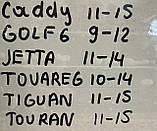 Caddy 11-15
GOLF6 9-12
JETTA 11-14
TOUAREG 10-14
TIGUAN 11-15
TOURAN 11-15